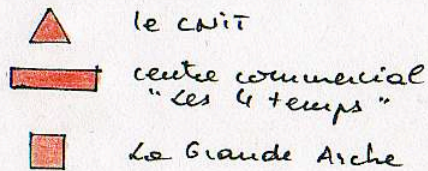 le CNIT
centre commercial
"Les 4 temps"
La Grande Arche